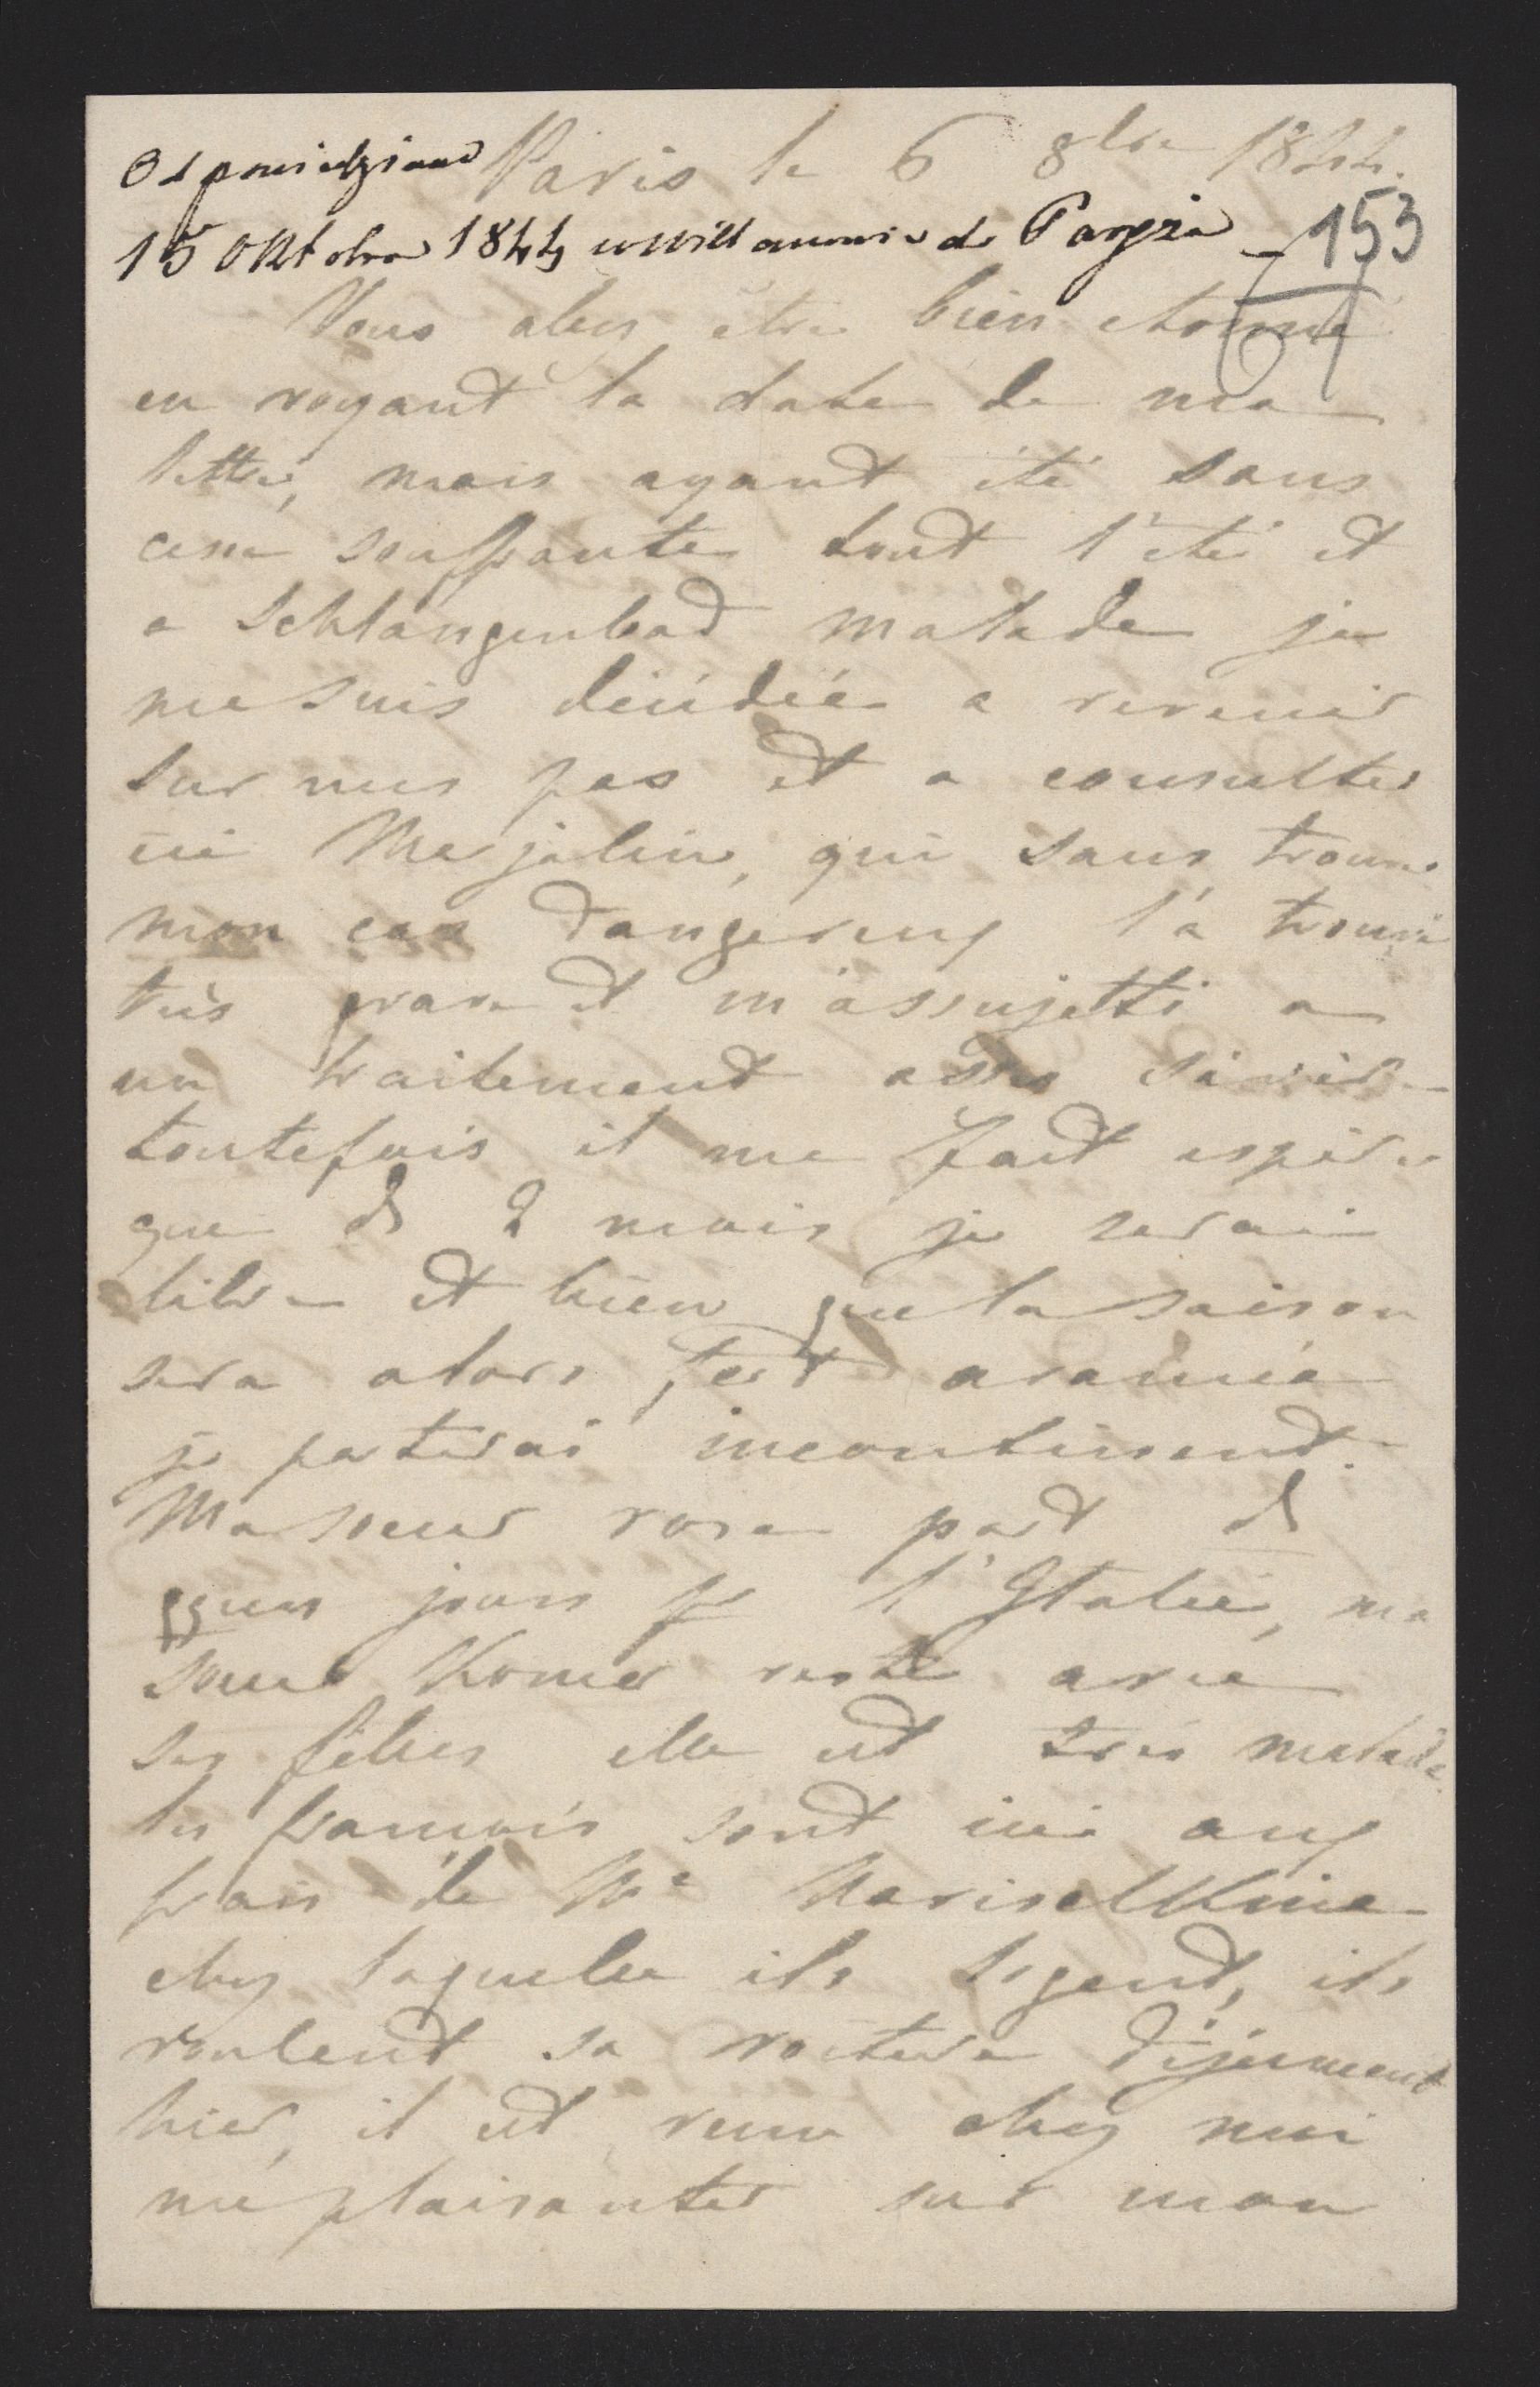 Odpowiedziano Paris le 6 8bre 1844.
15 Oktobra 1844 w Willanowie do Paryża 153
Vous alez être bien etonné
en voyant la date de ma
lettre, mais ayant été sans
cesse souffrante tout l'été et
a Schlangenbad malade je
me suis décidée a revenir
sur mes pas et a consulter
ici Marjolin, qui sans trouver
mon cas dangereux l'a trouvé
très grave et m'assujetti a
un traitement assez sévère
toutefois il me fait espérer
que ds 2 mois je serai
libre et bien que la saison
sera alors fort avancée
je partirai incontinent.
Ma soeur rose part ds
qques jours pr l'Italie, ma
soeur Komar reste avec
ses filles elle est très malade.
les françois sont ici aux
frais de Me Narischkine
chez laquelle ils logent, ils
roulent sa voiture
hier, il est venu chez moi
me plaisanter sur mon